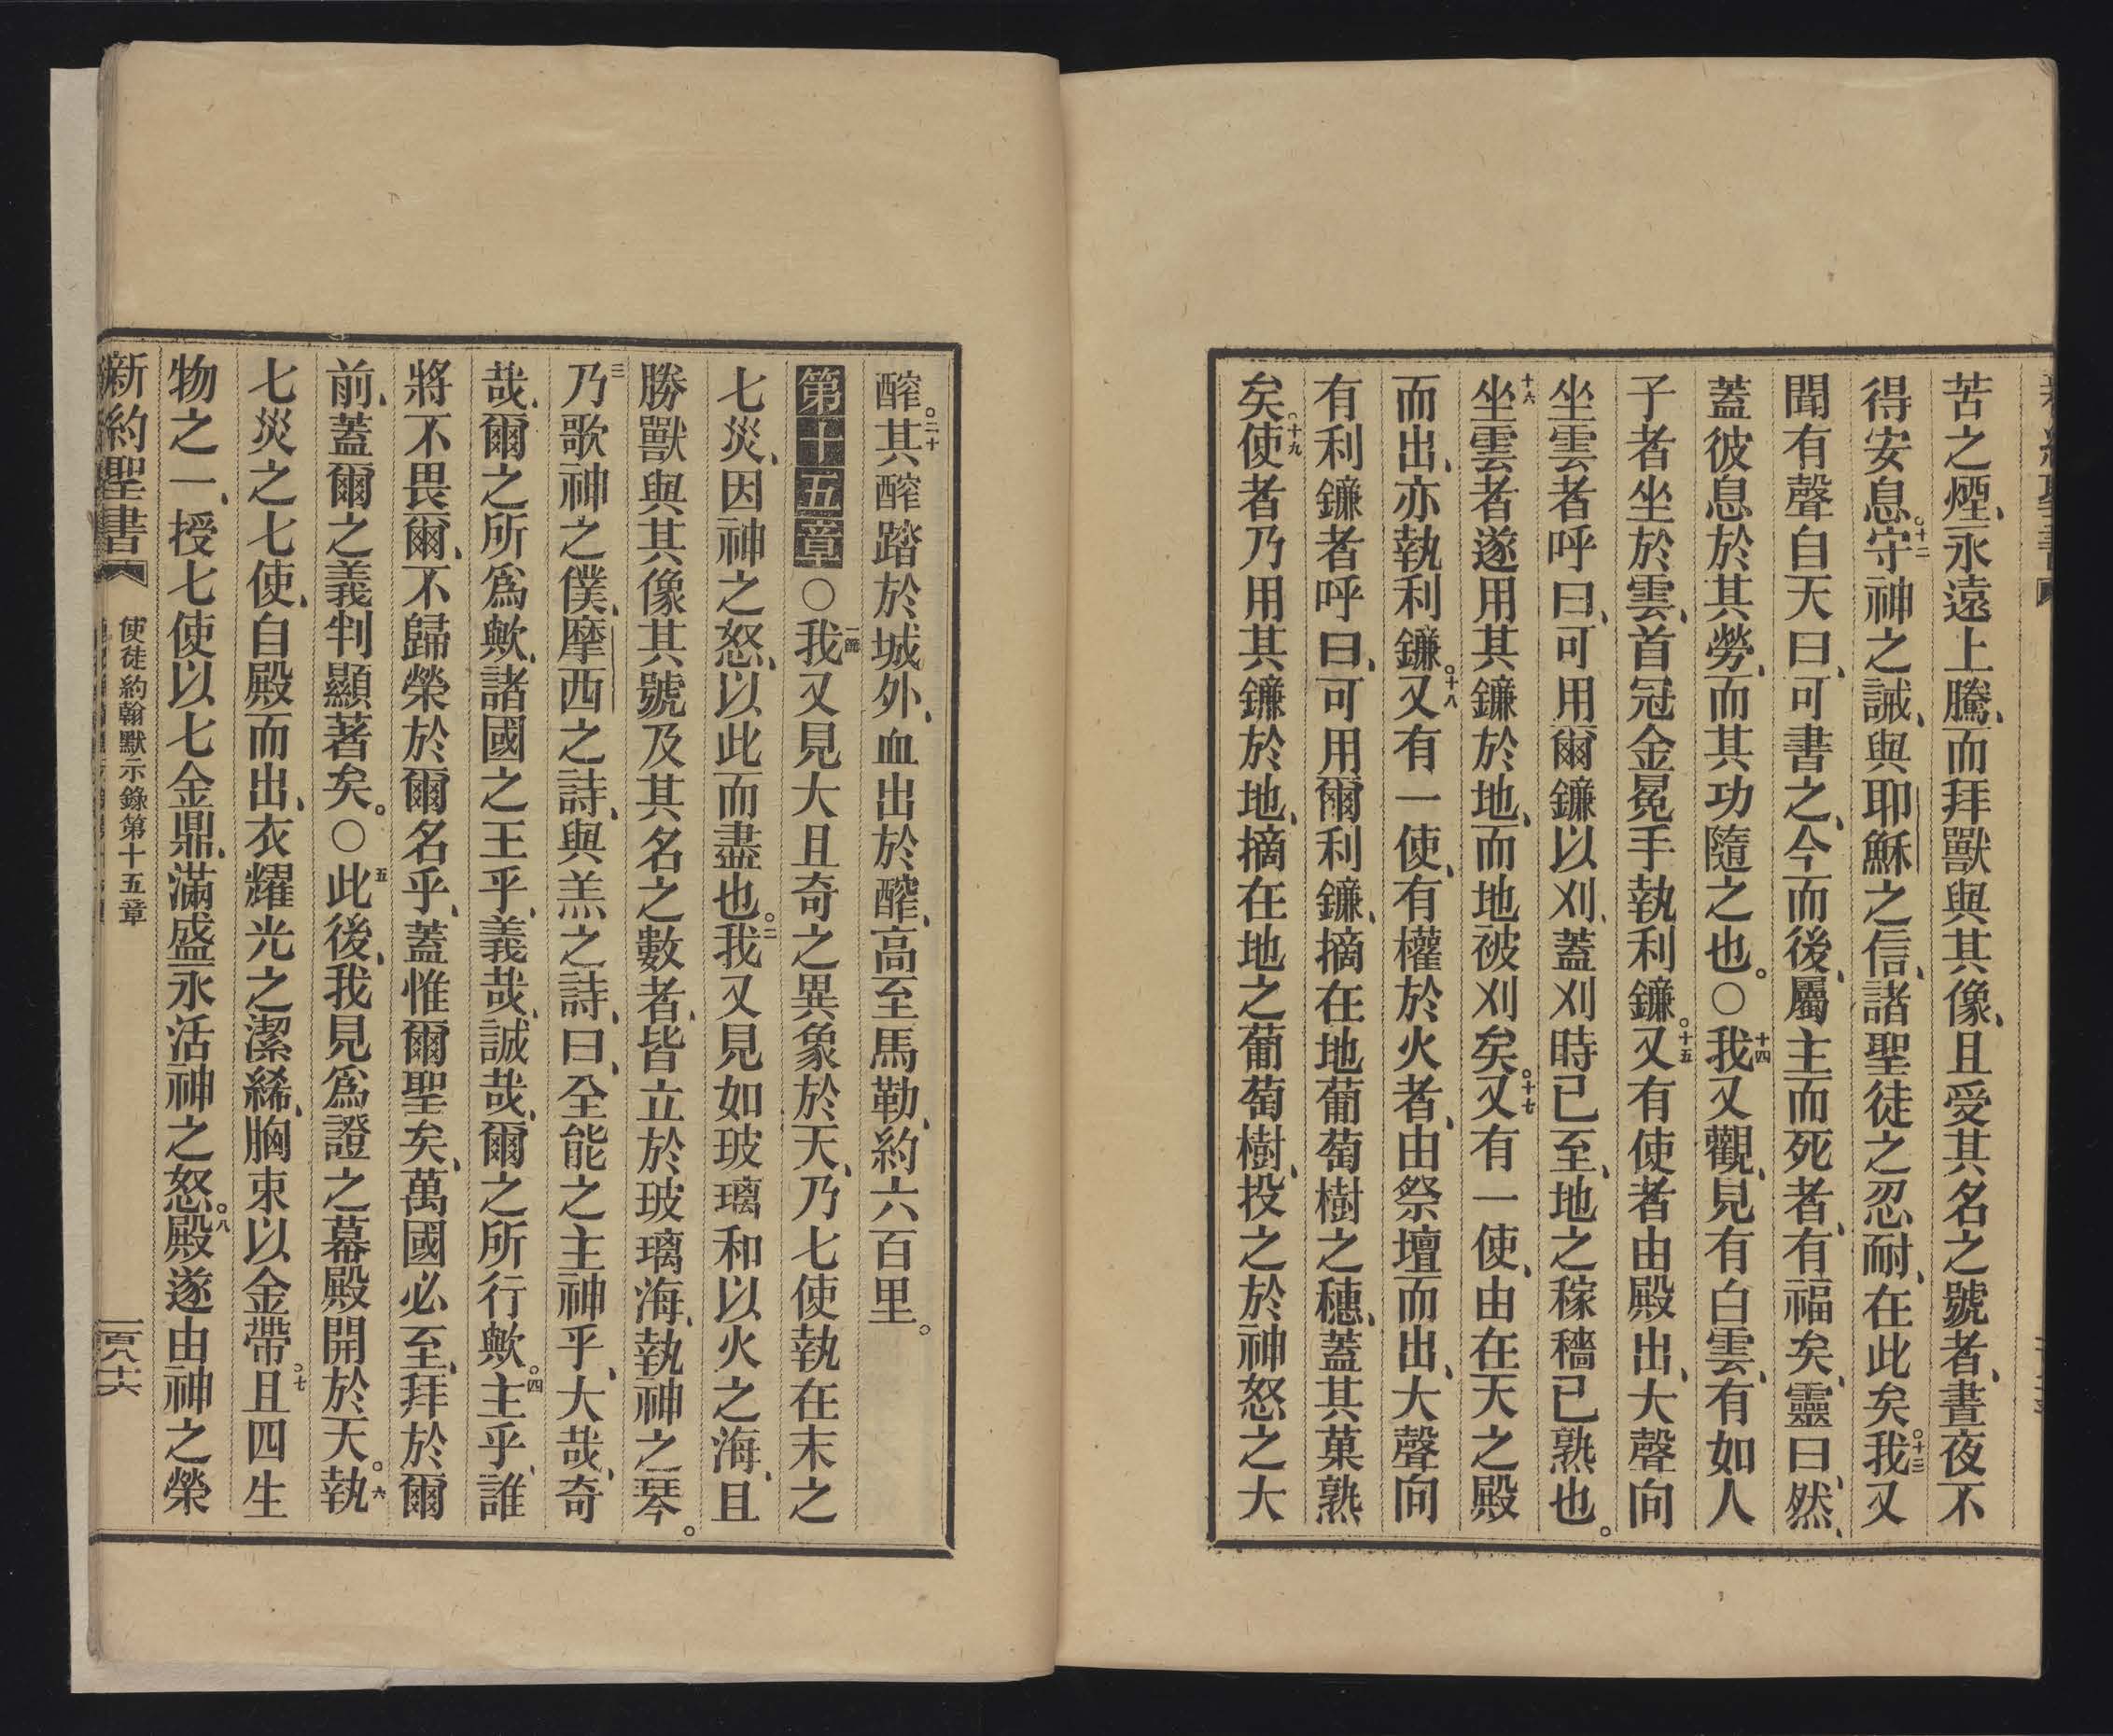 苦之煙、永遠上騰、而拜獸與其像、且受其名之號者、晝夜不
得安息。十二守神之誡、與耶穌之信、諸聖徒之忍耐、在此矣。十三我又
聞有聲自天曰、可書之、今而後、屬主而死者、有福矣、靈曰、然、
蓋彼息於其勞、而其功隨之也。〇十四我又觀、見有白雲、有如人
子者坐於雲、首冠金冕手執利鐮。十五又有使者由殿出、大聲向
坐雲者呼曰、可用爾鐮以刈、蓋刈時已至、地之稼穡已熟也。
十六坐雲者遂用其鐮於地、而地被刈矣。十七又有一使、由在天之殿
而出、亦執利鐮。十八又有一使、有權於火者、由祭壇而出、大聲向
有利鐮者呼曰、可用爾利鐮、摘在地葡萄樹之穗、蓋其菓熟
矣。十九使者乃用其鐮於地、摘在地之葡萄樹、投之於神怒之大
醡。二十其醡踏於城外、血出於醡、高至馬勒、約六百里。
第十五章〇一節我又見大且奇之異象於天、乃七使執在末之
七災、因神之怒、以此而盡也。二我又見如玻璃和以火之海、且
勝獸與其像其號及其名之數者、皆立於玻璃海、執神之琴。
三乃歌神之僕、摩西之詩、與羔之詩、曰、全能之主神乎、大哉、奇
哉、爾之所爲歟、諸國之王乎、義哉、誠哉、爾之所行歟。四主乎、誰
將不畏爾、不歸榮於爾名乎、蓋惟爾聖矣、萬國必至、拜於爾
前、蓋爾之義判顯著矣。〇五此後、我見爲證之幕殿開於天。六執
七災之七使、自殿而出、衣燿光之潔絺、胸束以金帶。七且四生
物之一、授七使以七金鼎、滿盛永活神之怒。八殿遂由神之榮
新約聖書 使徒約翰默示錄第十五章 一百八十六